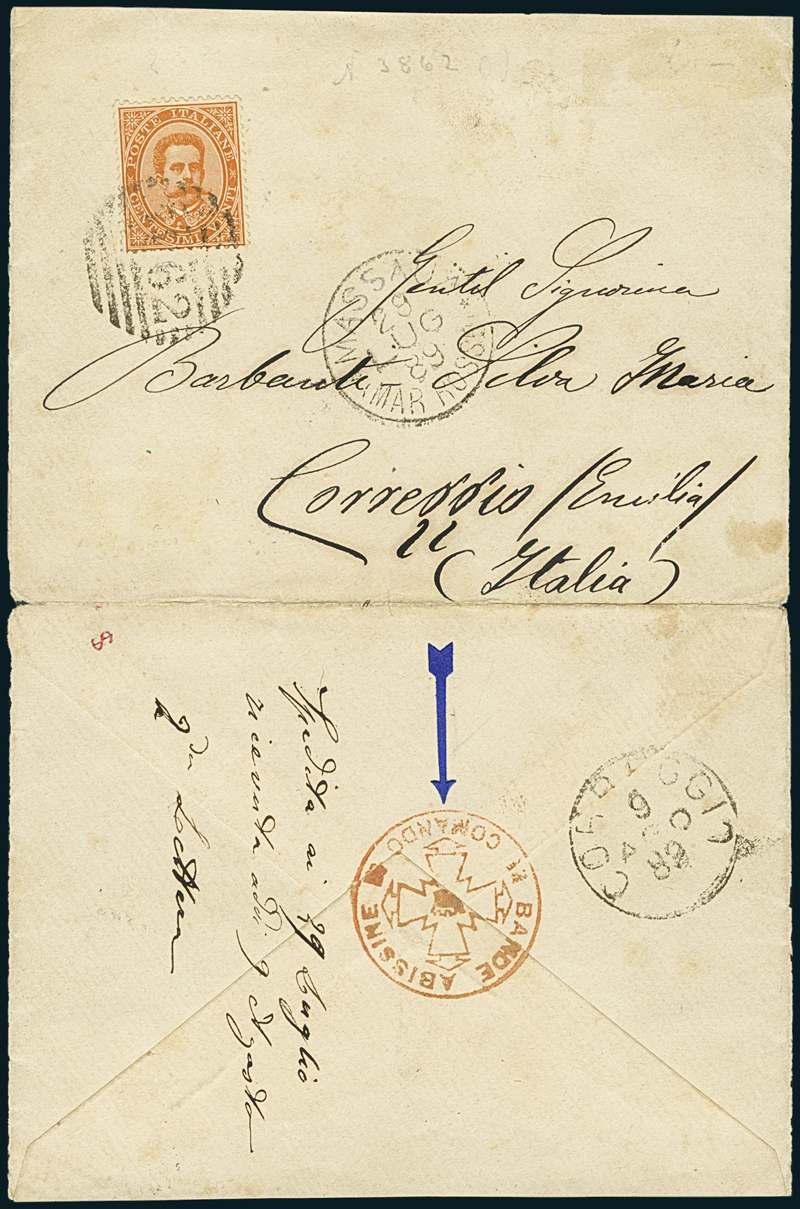 N 3862
POSTE ITALIANE
CENTESIMI VENTI
3862
MASSAUA
29
LUG
89
MAR ROSSO
Gentil Signorina
Barbanti Silva Maria
Correggio (Emilia)
(Italia)
8
Spedita ai 29 Luglio
ricevuta addì 9 Agosto
2da Lettera
COMANDO BANDE ABISSINE
CORREGGIO
9
89